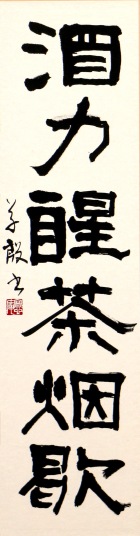 酒力醒茶烟歇